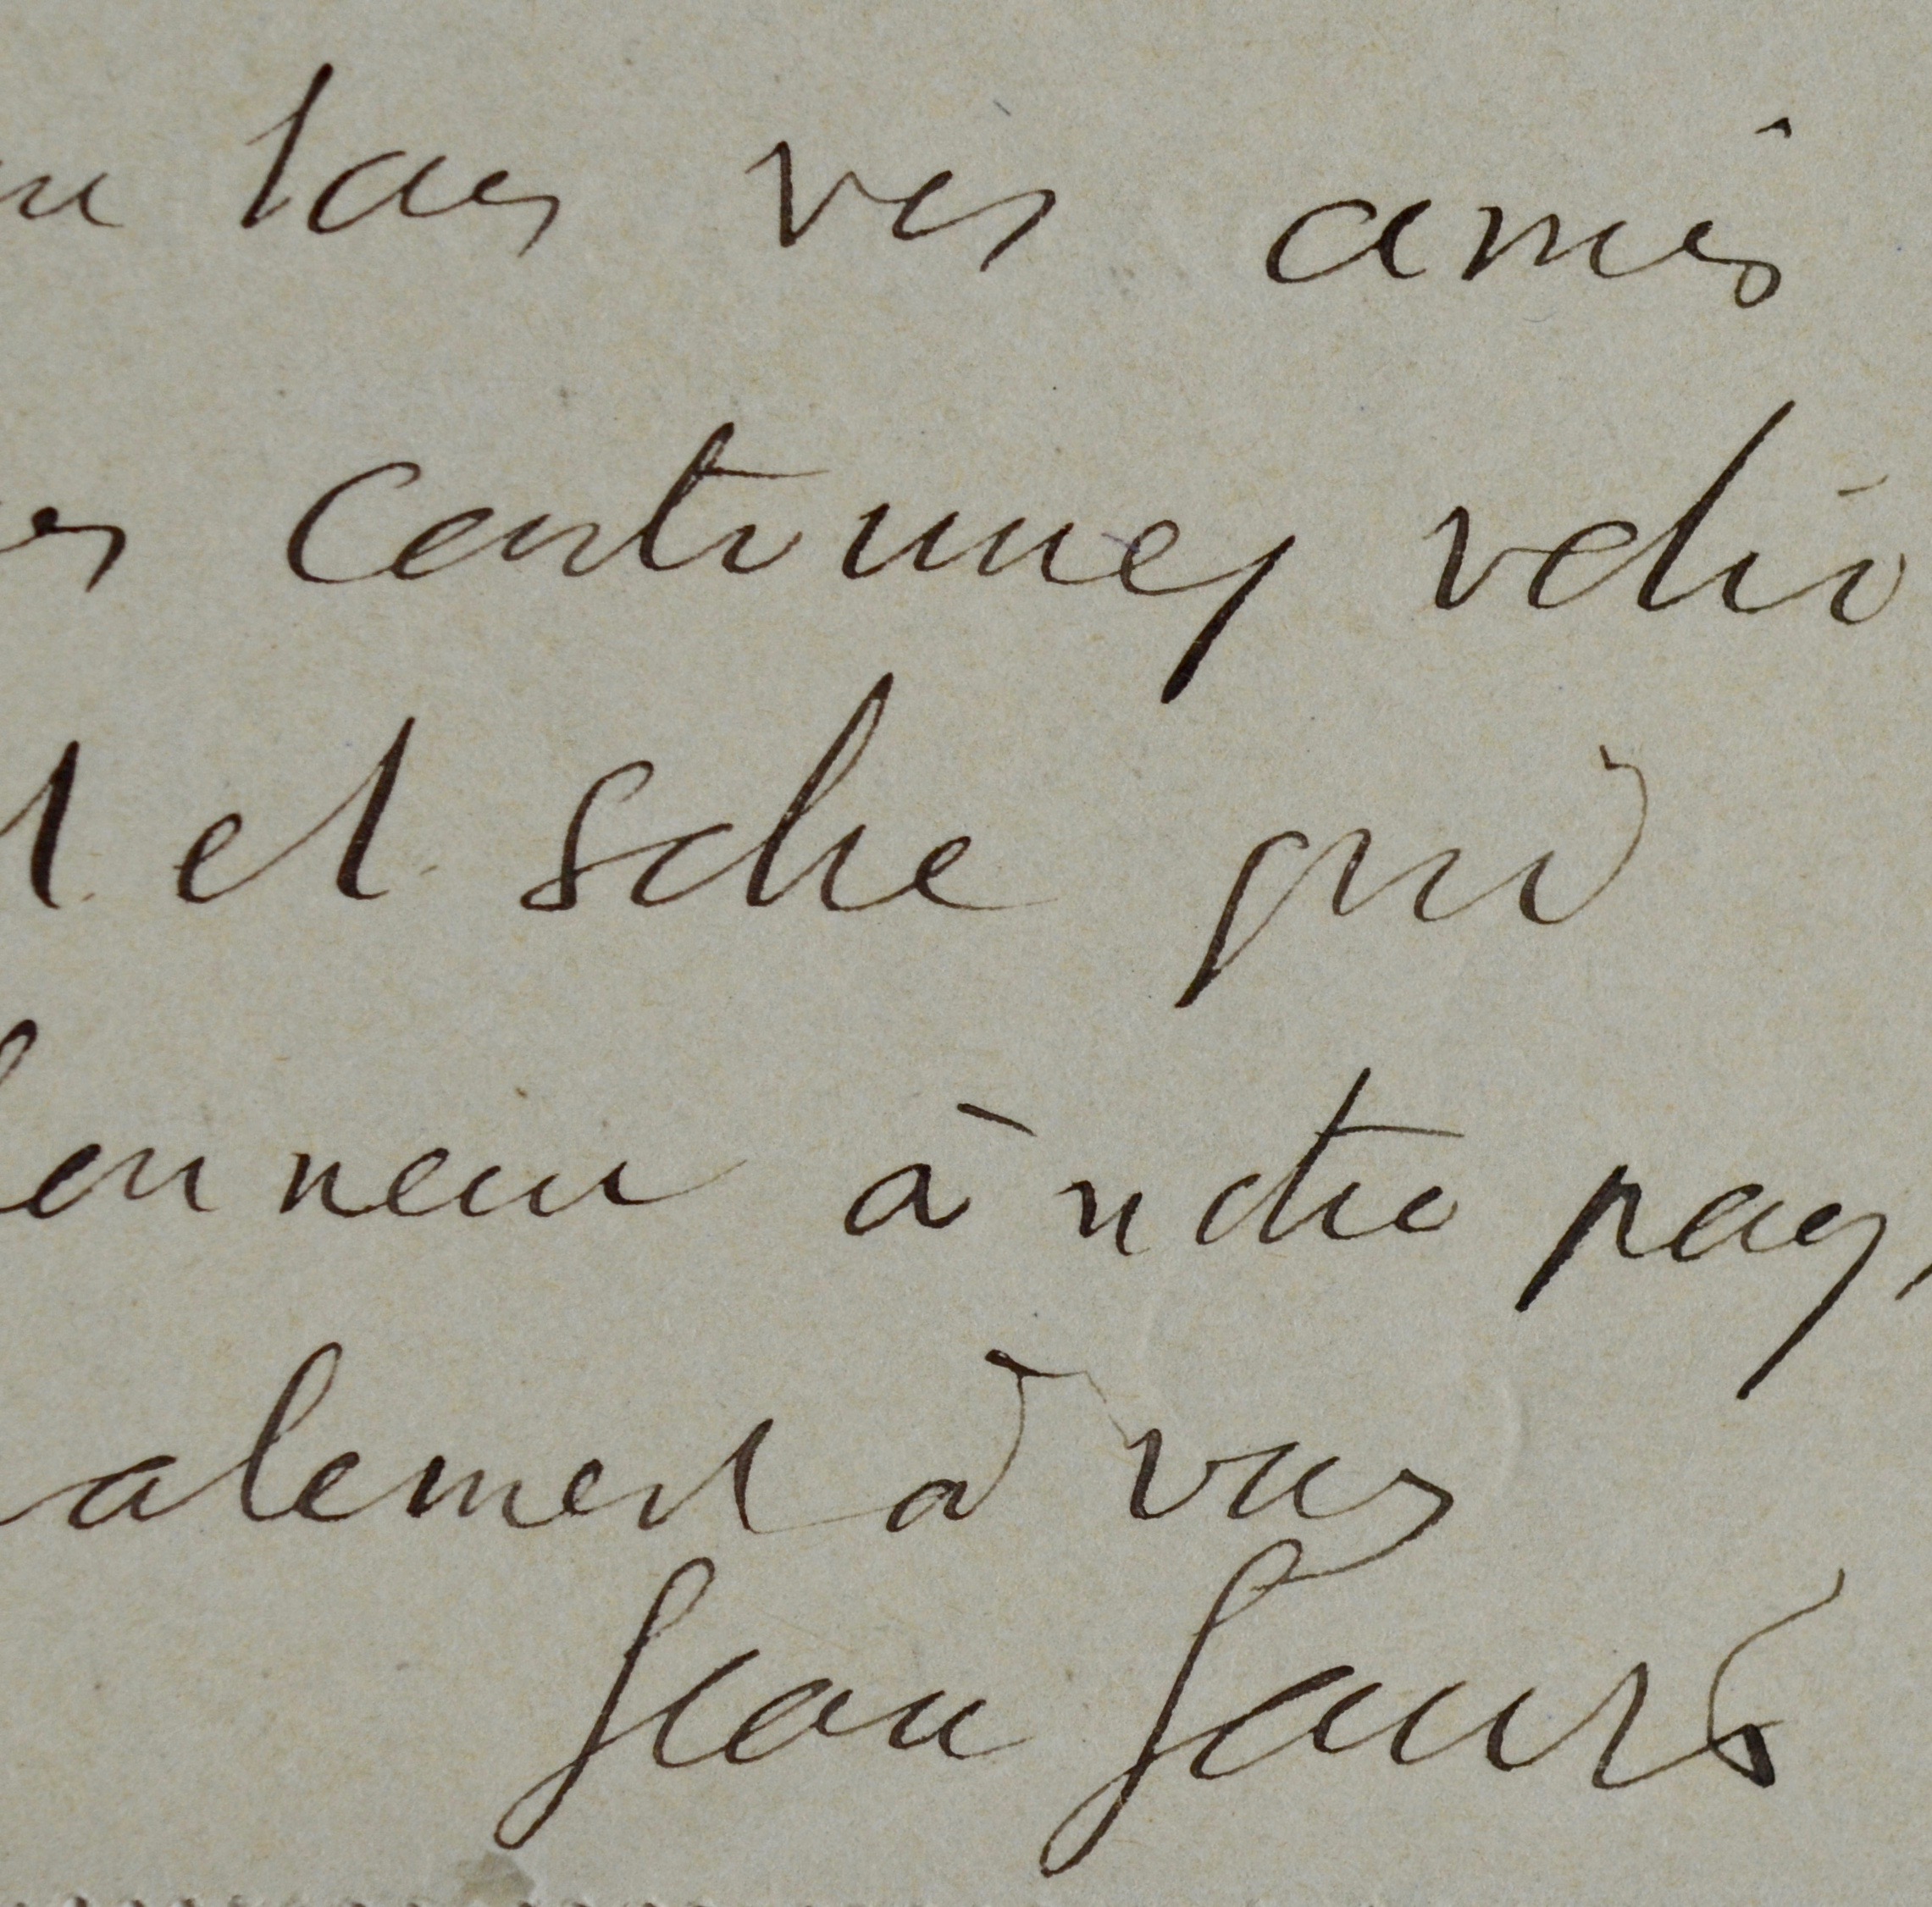 tous vos amis
continuez votre
et et solie qui
honneur à notre pays,
alement à vous
Jean Jaurès